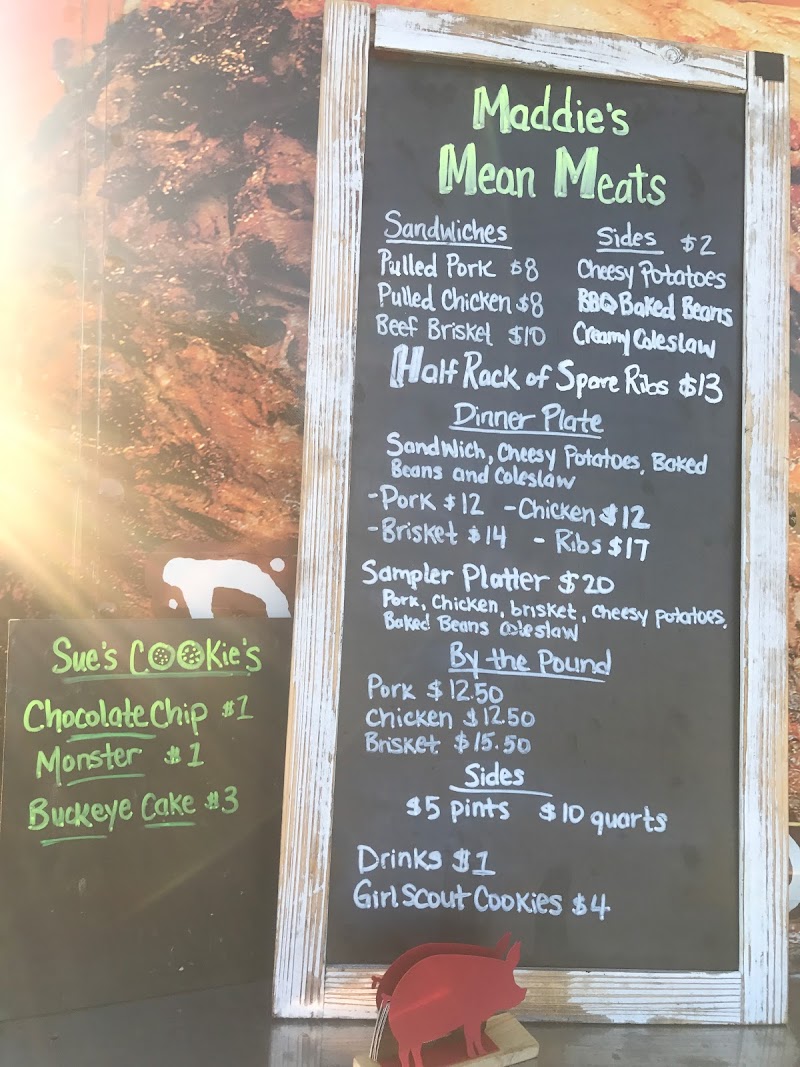 Maddie's
Mean Meats
Sandwiches
Pulled Pork $8
Pulled Chicken $8
Beef Brisket $10
Sides $2
Cheesy Potatoes
BBQ Baked Beans
Creamy Coleslaw
Half Rack of Spare Ribs $13
Dinner Plate
Sandwich, Cheesy Potatoes, Baked
Beans and Coleslaw
-Pork $12 -Chicken $12
-Brisket $14 - Ribs $17
Sampler Platter $20
Pork, Chicken, brisket, cheesy potatoes,
Baked Beans Coleslaw
By the Pound
Pork $12.50
Chicken $12.50
Brisket $15.50
Sides
$5 pints $10 quarts
Drinks $1
Girl Scout Cookies $4
Sue's Cookie's
Chocolate Chip $1
Monster $1
Buckeye Cake $3